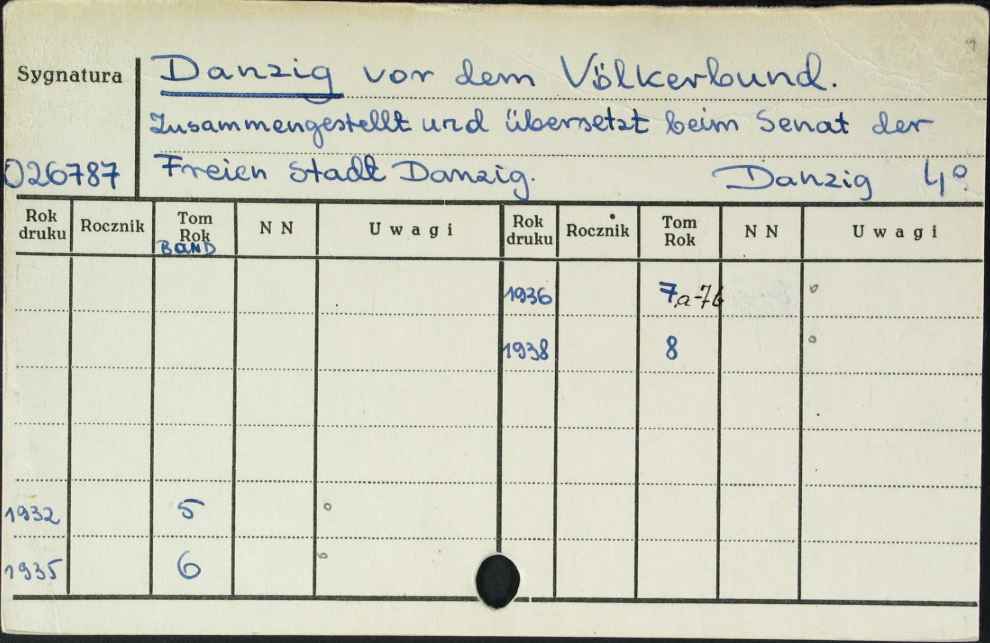 Sygnatura
Danzig vor dem Völkerbund.
Zusammengestellt und übersetzt beim Senat der
026787
Freien Stadt Danzig. Danzig 4°
Rok druku Rocznik Tom Rok BAND N N Uwagi Rok druku Rocznik Tom Rok N N Uwagi
1936 7a-7b
1938 8
1932 5
1935 6